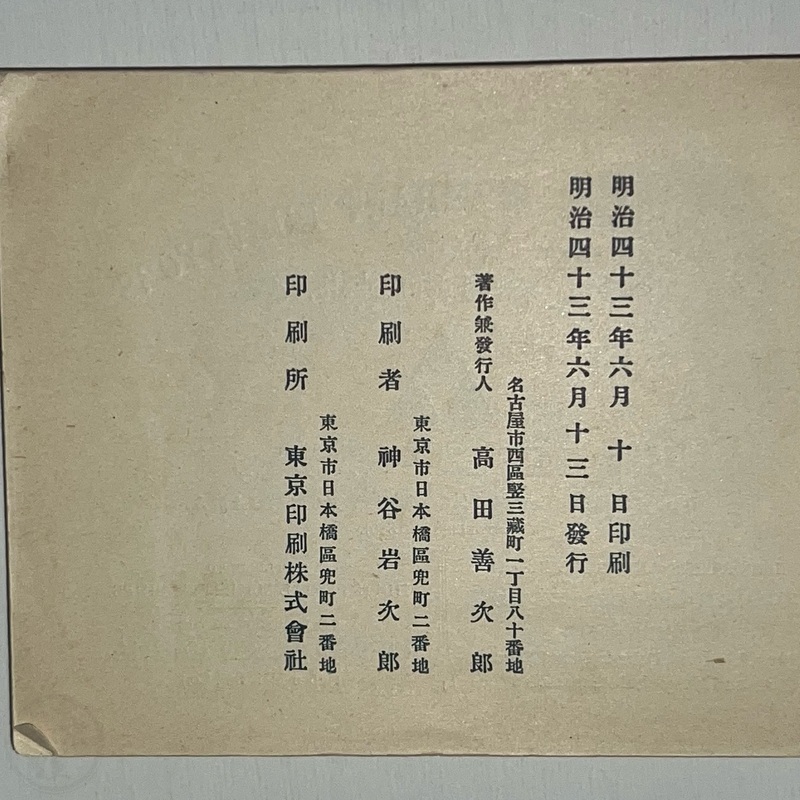 明治四十三年六月十日印刷
明治四十三年六月十三日發行
名古屋市西區竪三藏町一丁目八十番地
著作兼發行人 高田善次郎
東京市日本橋區兜町二番地
印刷者 神谷岩次郎
東京市日本橋區兜町二番地
印刷所 東京印刷株式會社